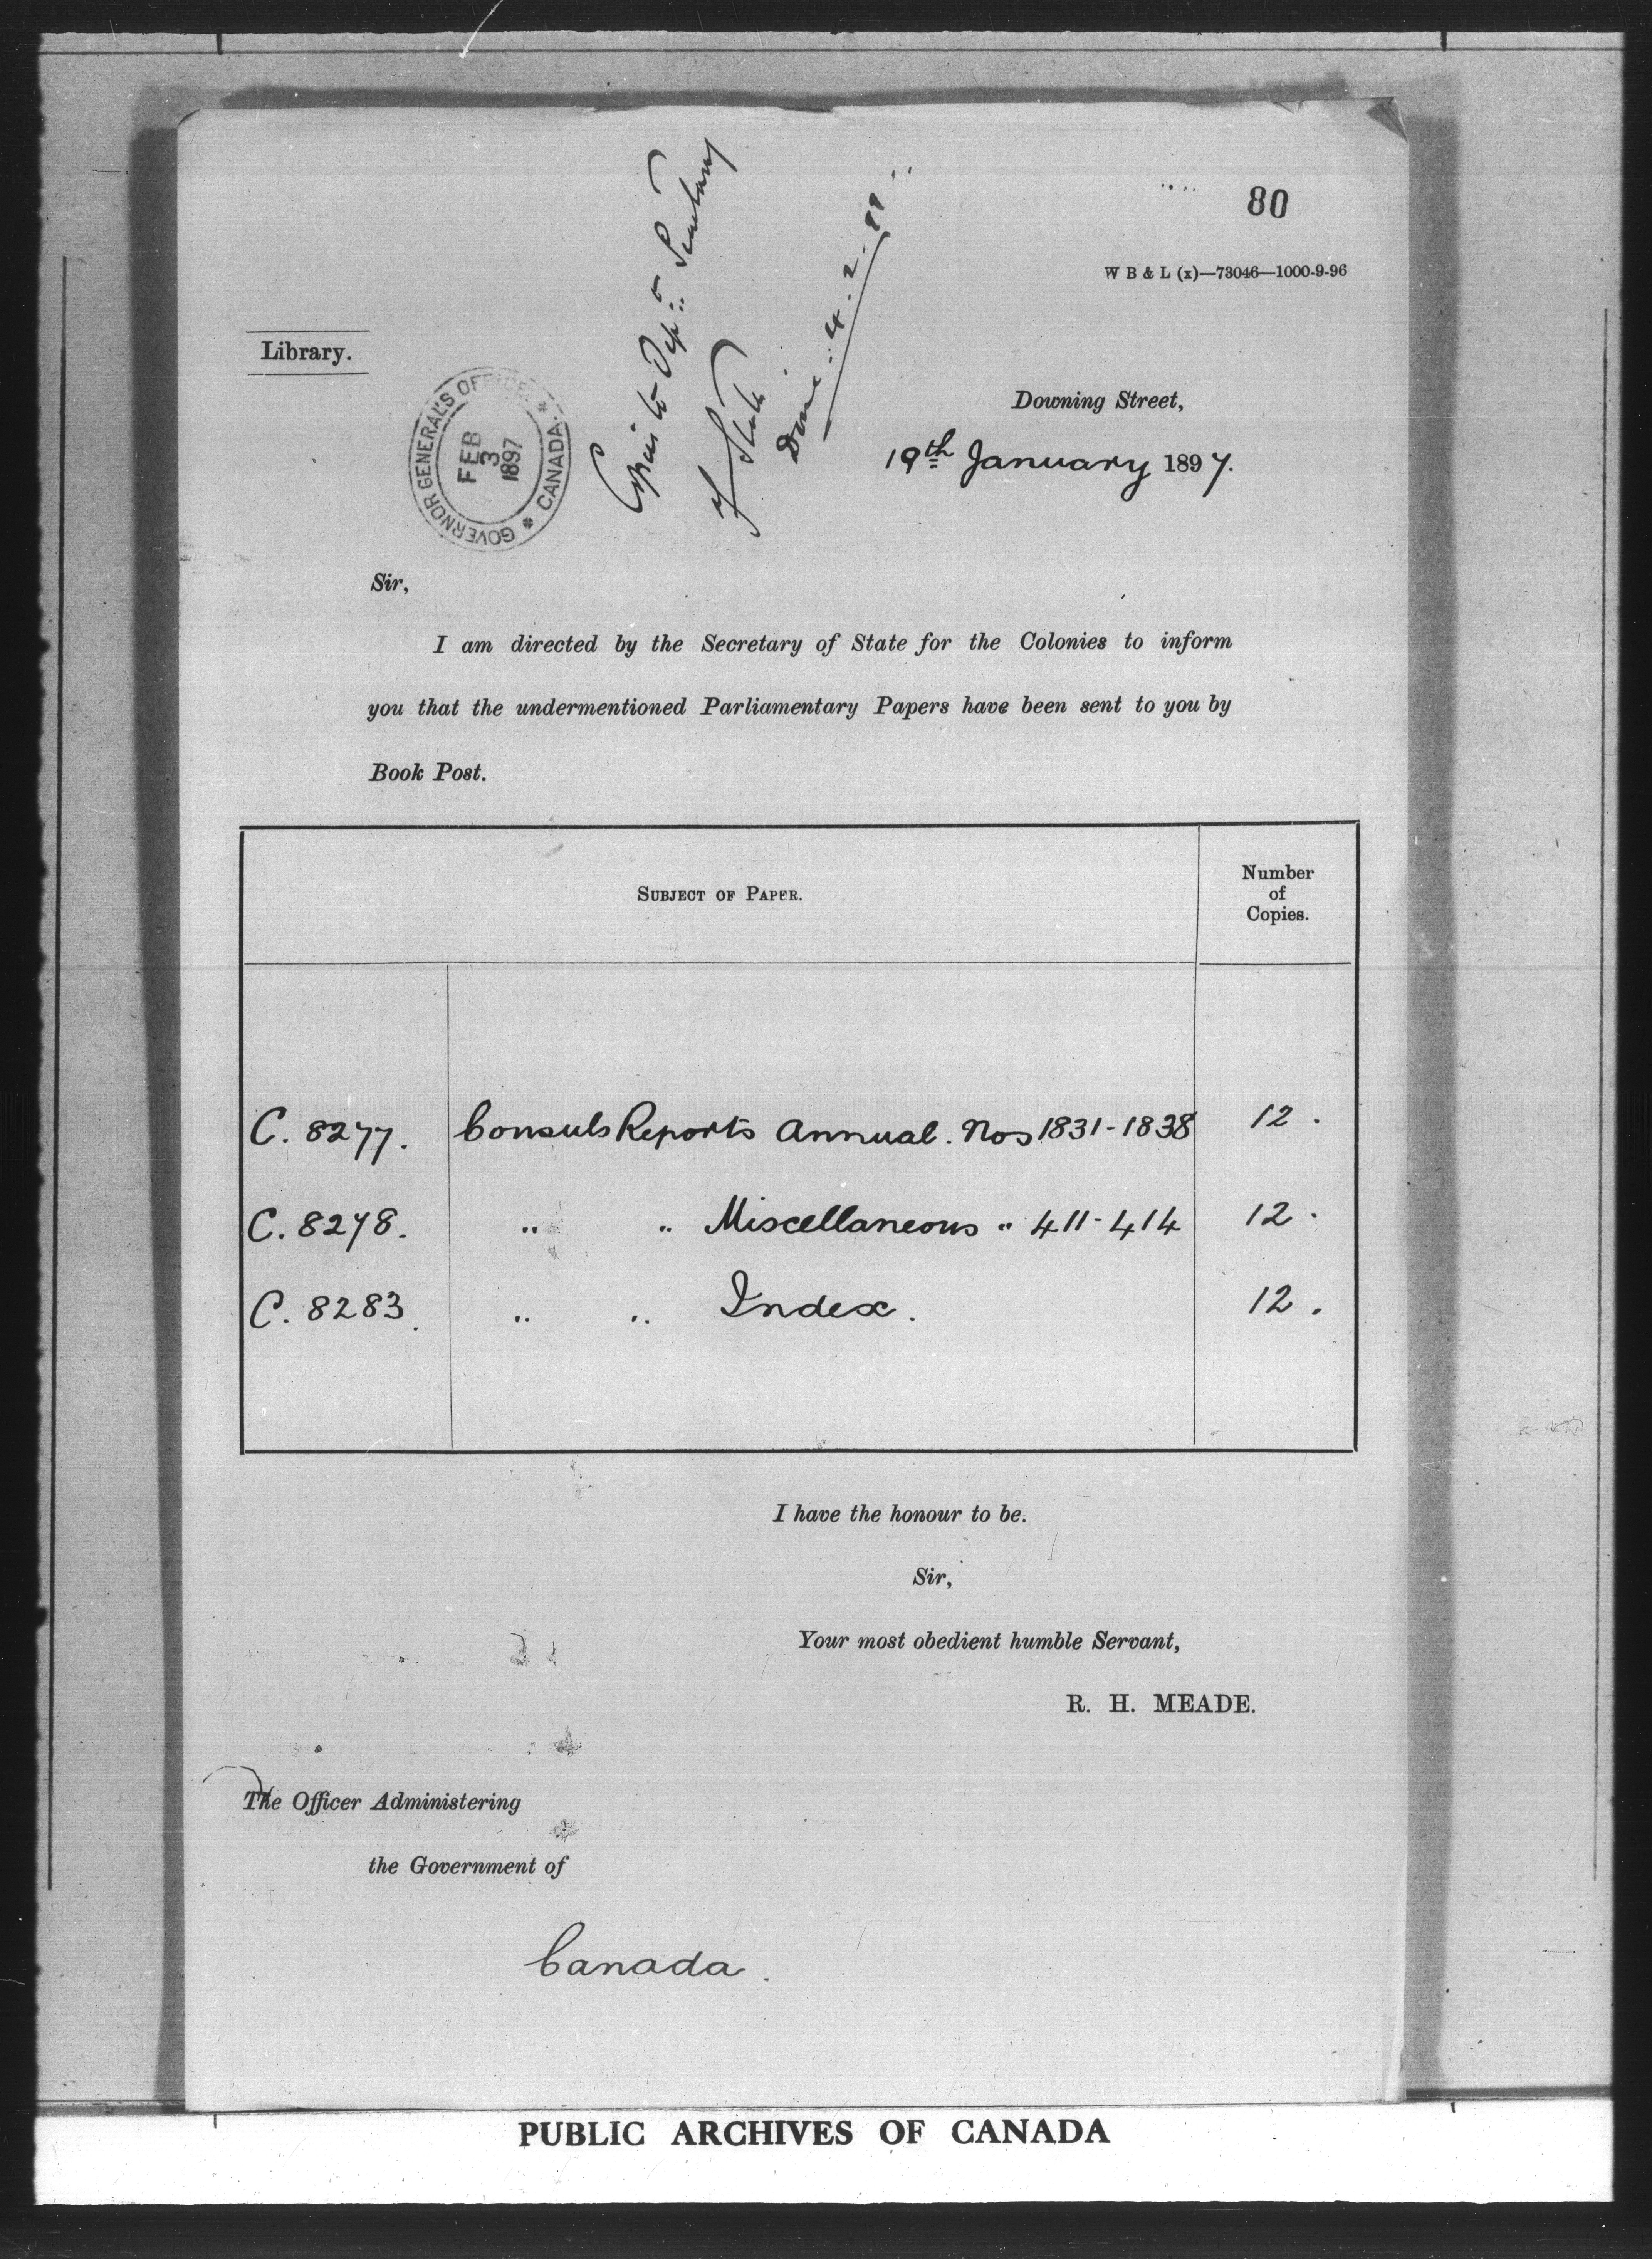 80
W B & L (x)—73046—1000-9-96
Library.
GOVERNOR GENERAL'S OFFICE. * CANADA. *
FEB
3
1897
Copies to Dept: Secretary
of State
Done: 4.2.
Downing Street,
19th January 1897.
Sir,
I am directed by the Secretary of State for the Colonies to inform
you that the undermentioned Parliamentary Papers have been sent to you by
Book Post.
SUBJECT OF PAPER.
Number
of
Copies.
C. 8277. Consuls Reports Annual. Nos 1831-1838 12.
C. 8278. " " Miscellaneous " 411-414 12.
C. 8283. " " Index. 12.
I have the honour to be.
Sir,
Your most obedient humble Servant,
R. H. MEADE.
The Officer Administering
the Government of
Canada.
PUBLIC ARCHIVES OF CANADA